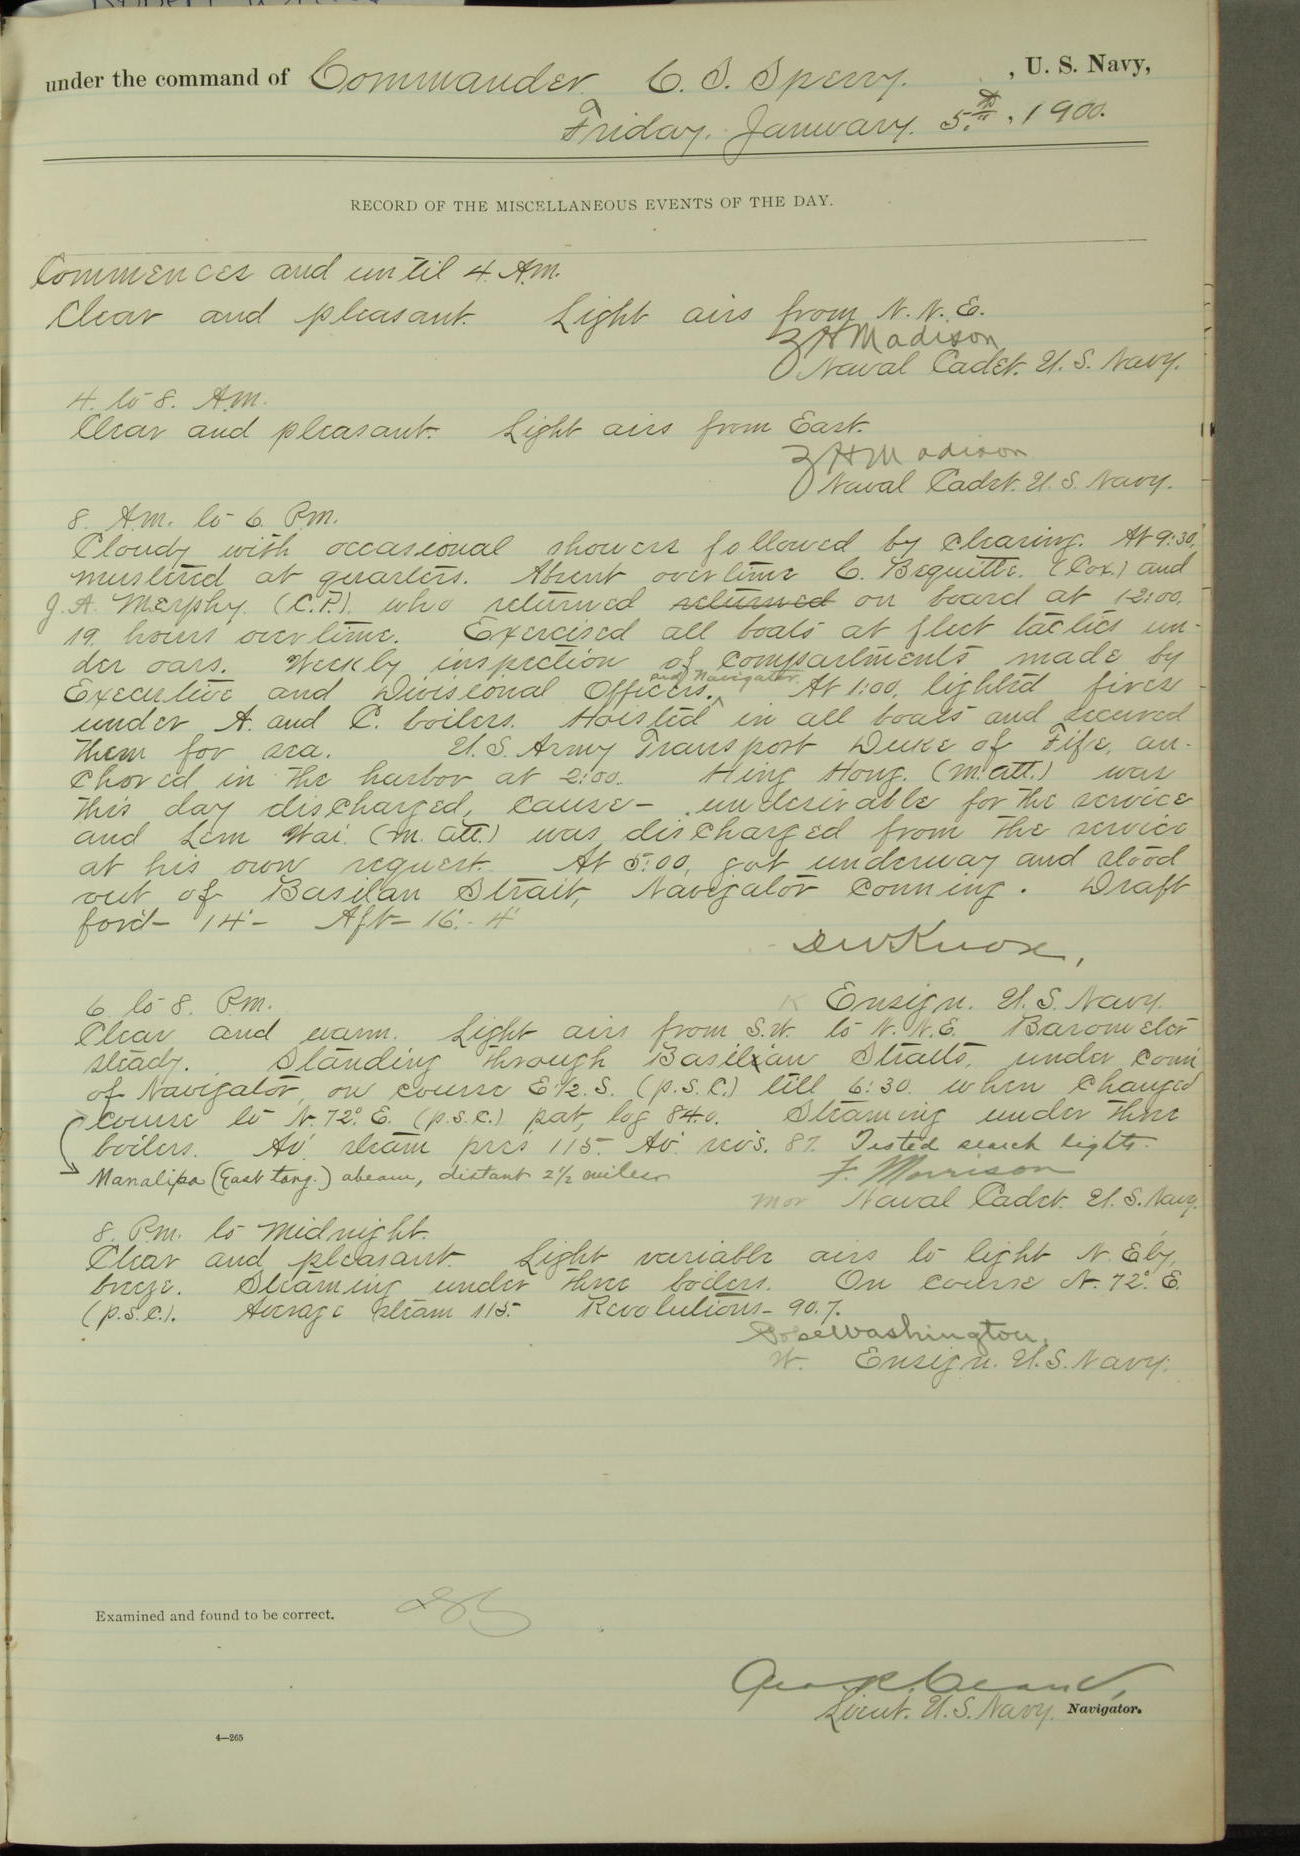 under the command of Commander C. S. Sperry. , U. S. Navy,
Friday. January. 5.th, 1900.
RECORD OF THE MISCELLANEOUS EVENTS OF THE DAY.
Commences and until 4. A.m.
Clear and pleasant. Light airs from N. N. E.
Z H Madison
Naval Cadet. U. S. Navy.
4. to 8. A.m.
Clear and pleasant. Light airs from East.
Z H Madison
Naval Cadet. U. S. Navy.
8. A.m. to 6. P.m.
Cloudy with occasional showers followed by clearing. At 9:30,
mustered at quarters. Absent overtime C. Bequitte. (Cox.) and
J. A. Murphy. (C.P.). who returned returned on board at 12:00.
19. hours overtime. Exercised all boats at fleet tactics un-
der oars. Weekly inspection of compartments made by
Executive and Divisional Officers. and Navigator. At 1:00. lighted fires
under A. and C. boilers. Hoisted in all boats and secured
them for sea. U. S. Army Transport Duke of Fife, an-
chored in the harbor at 2:00. Hing Hong. (M. att.) was
this day discharged, cause - undesirable for the service
and Lem Wai. (M. att.) was discharged from the service
at his own request. At 5:00, got underway and stood
out of Basilan Strait, Navigator conning. Draft
for'd - 14' - Aft - 16'. - 4"
D W Knox,
K Ensign. U. S. Navy.
6. to 8. P.m.
Clear and warm. Light airs from S.W. to N. N. E. Barometer
steady. Standing through Basilian Straits, under conn
of Navigator, on course E. 1/2. S. (p. s. c.) till 6:30. when changed
course to N. 72° E. (p. s. c.) pat, log 84.0. Steaming under three
boilers. Av. steam pres 115. Av. rev's. 87. Tested search lights.
Manalipa (East tang.) abeam, distant 2 1/2 miles
F. Morrison
Mor Naval Cadet. U. S. Navy.
8. P.m. to Midnight.
Clear and pleasant. Light variable airs to light N. E'ly,
breeze. Steaming under three boilers. On course N. 72° E.
(p. s. c.). Average steam 115. Revolutions - 90.7.
Pope Washington.
W. Ensign. U. S. Navy.
Examined and found to be correct.
Lieut. U. S. Navy. Navigator.
4—265